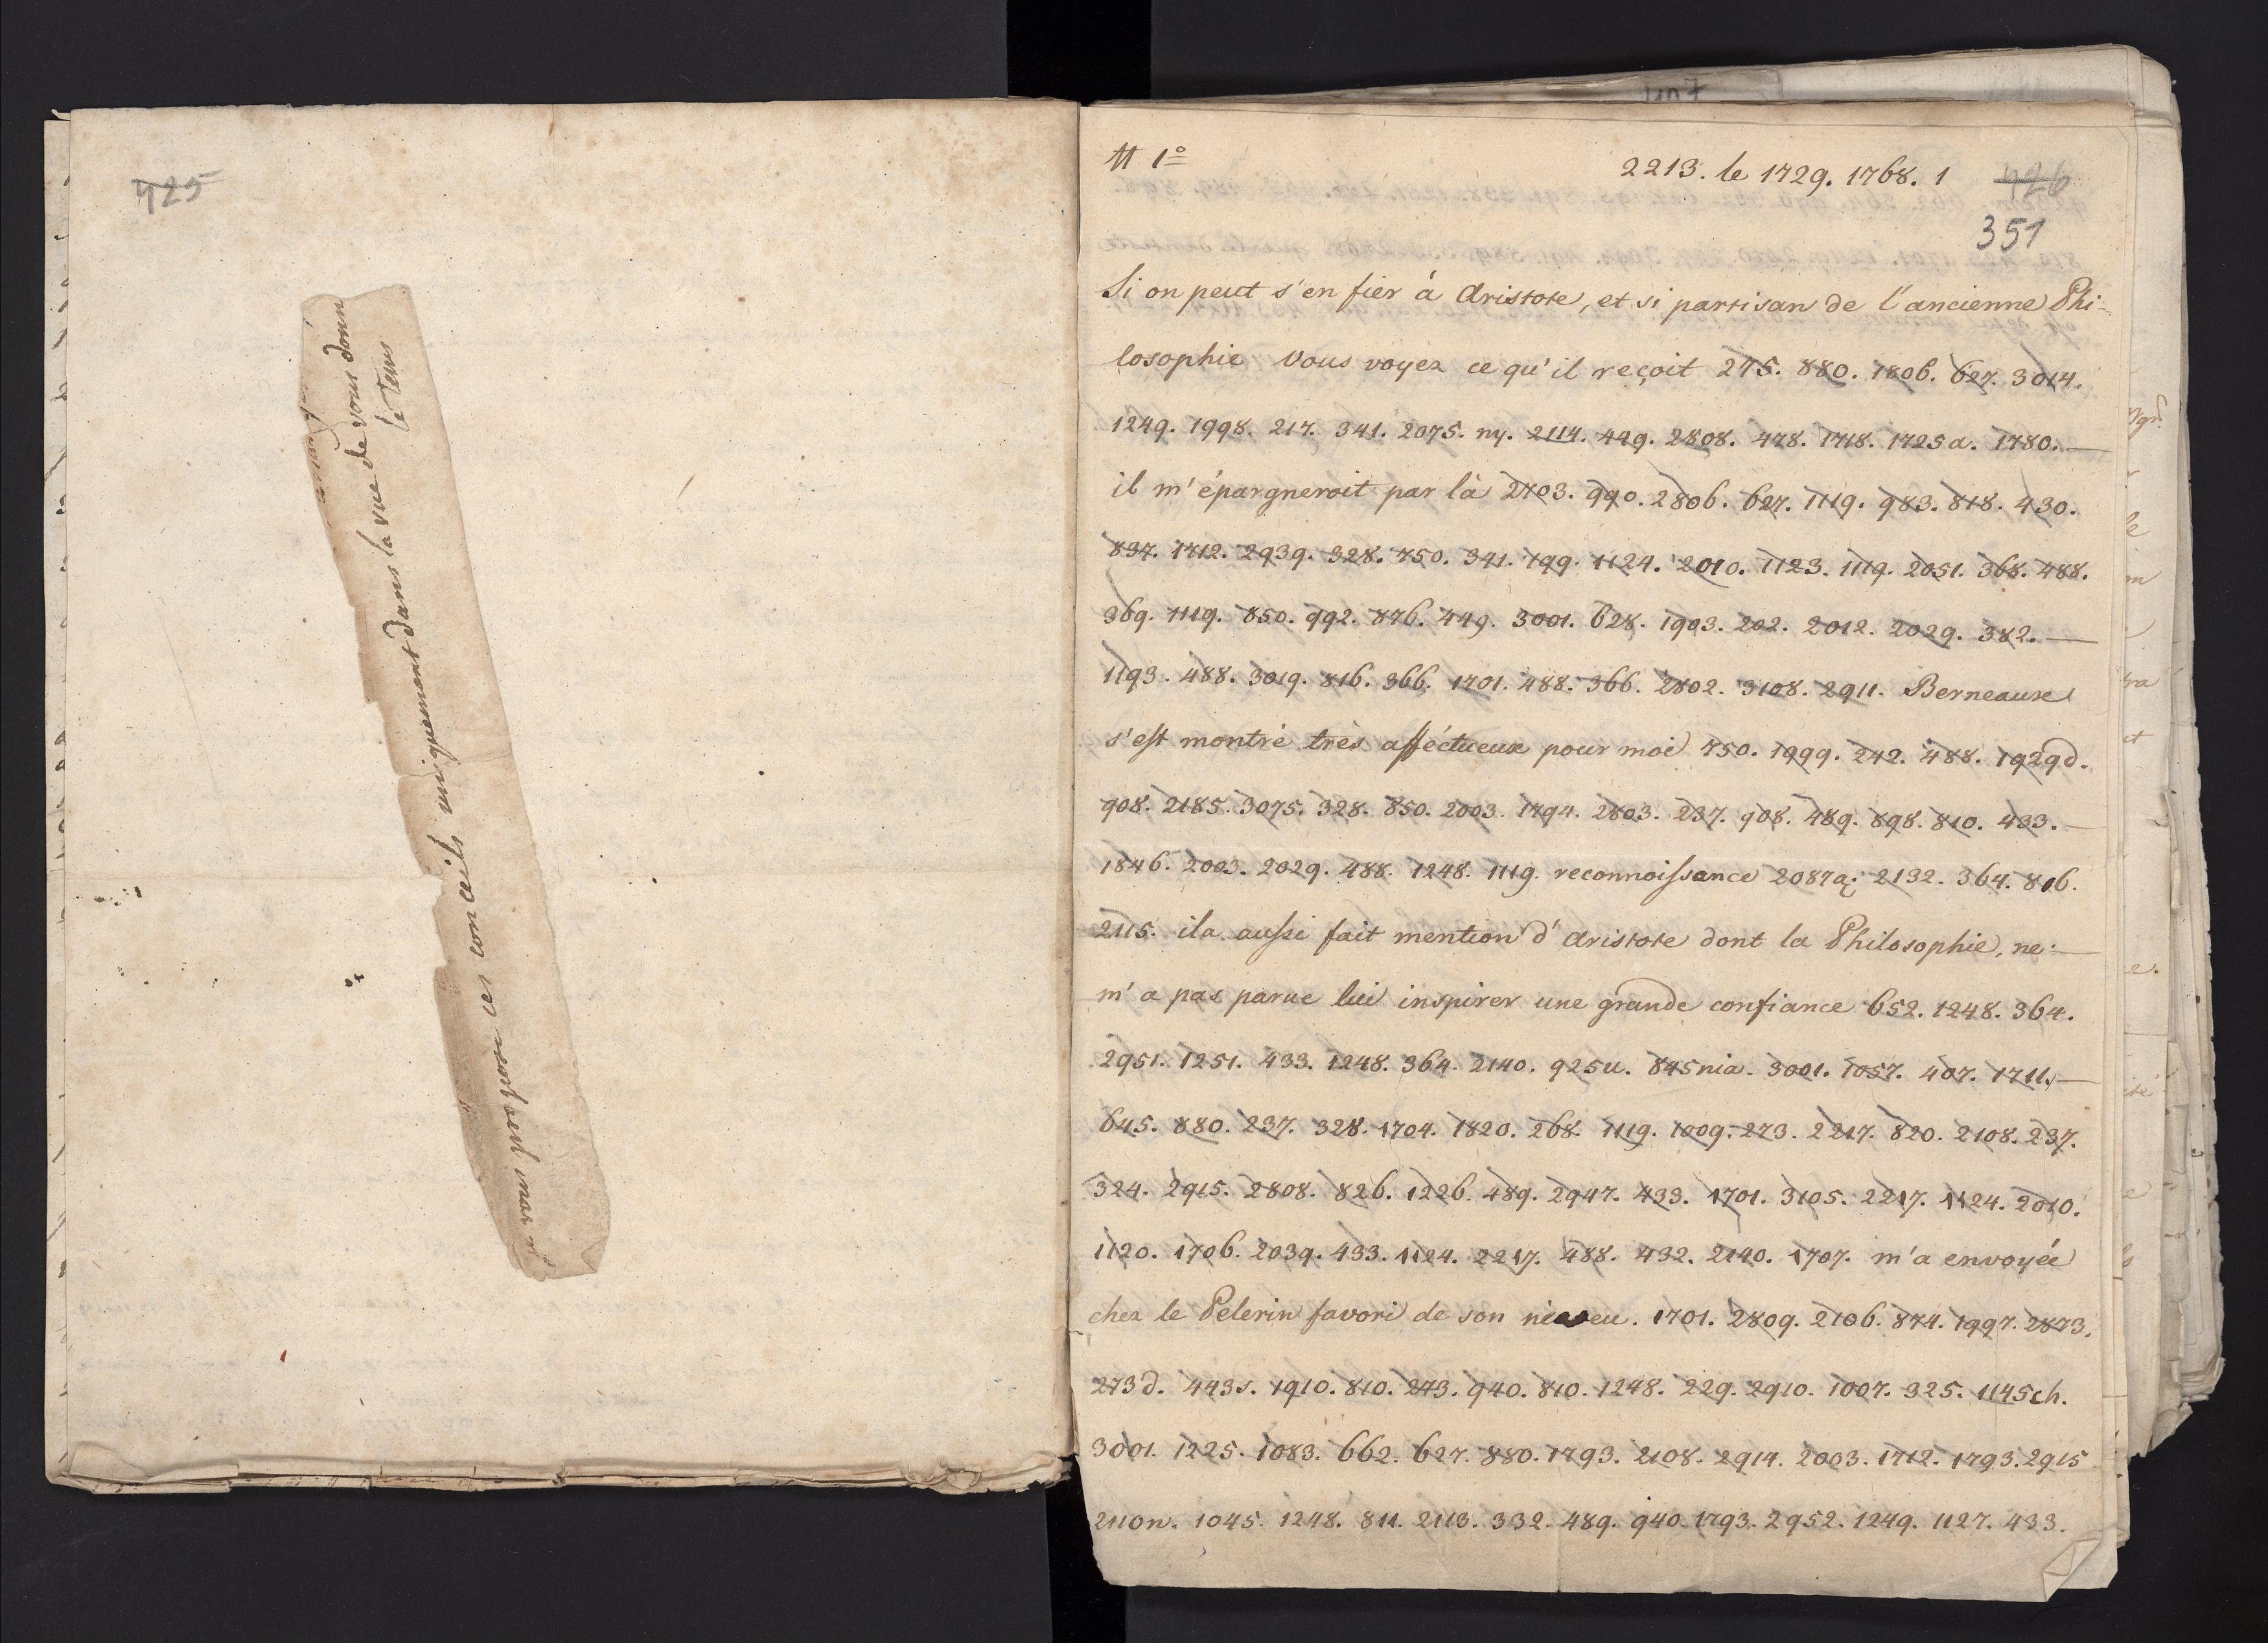 425
je vous propose ces conceils uniquement dans la vue de vous donn
le tems
# 1º
2213. le 1729. 1768. 1
426
351
Si on peut s'en fier á Aristote, et si partisan de l'ancienne Phi-
losophie vous voyez ce qu'il reçoit 275. 880. 1806. 627. 3014.
1249. 1998. 217. 341. 2075. ny. 2114. 449. 2808. 478. 1718. 1725a. 1780.—
il m'épargneroit par là 2703. 990. 2806. 627. 1119. 983. 818. 430.
837. 1712. 2939. 328. 750. 341. 199. 1124. 2010. 1123. 1119. 2051. 368. 488.
369. 1119. 850. 992. 876. 449. 3001. 628. 1903. 202. 2012. 2029. 382.—
1193. 488. 3019. 816. 366. 1701. 488. 366. 2802. 3108. 2911. Berneause
s'est montré très afféctueux pour moi 750. 1999. 242. 488. 1929d.
908. 2185. 3075. 328. 850. 2003. 1794. 2803. 237. 908. 489. 898. 810. 433.—
1846. 2003. 2029. 488. 1248. 1119. reconnoissance 2087a; 2132. 364. 816.
2115. il a aussi fait mention d'Aristote dont la Philosophie, ne—
m'a pas parue lui inspirer une grande confiance 652. 1248. 364.
2951. 1251. 433. 1248. 364. 2140. 925u. 845nia. 3001. 1057. 407. 1711.—
645. 880. 237. 328. 1704. 1820. 268. 1119. 1009. 273. 2217. 820. 2108. 237.
324. 2915. 2808. 826. 1226. 489. 2947. 433. 1701. 3105. 2217. 1124. 2010.
1120. 1706. 2039. 433. 1124. 2217. 488. 432. 2140. 1707. m'a envoyée
chez le Pelerin favori de son neveu. 1701. 2809. 2106. 874. 1997. 2873.
273d. 443s. 1910. 810. 273. 940. 810. 1248. 229. 2910. 1007. 325. 1145ch.
3001. 1225. 1083. 662. 627. 880. 1793. 2108. 2914. 2003. 1712. 1793. 2915
2110n. 1045. 1248. 811. 2113. 332. 489. 940. 1793. 2952. 1249. 1127. 433.